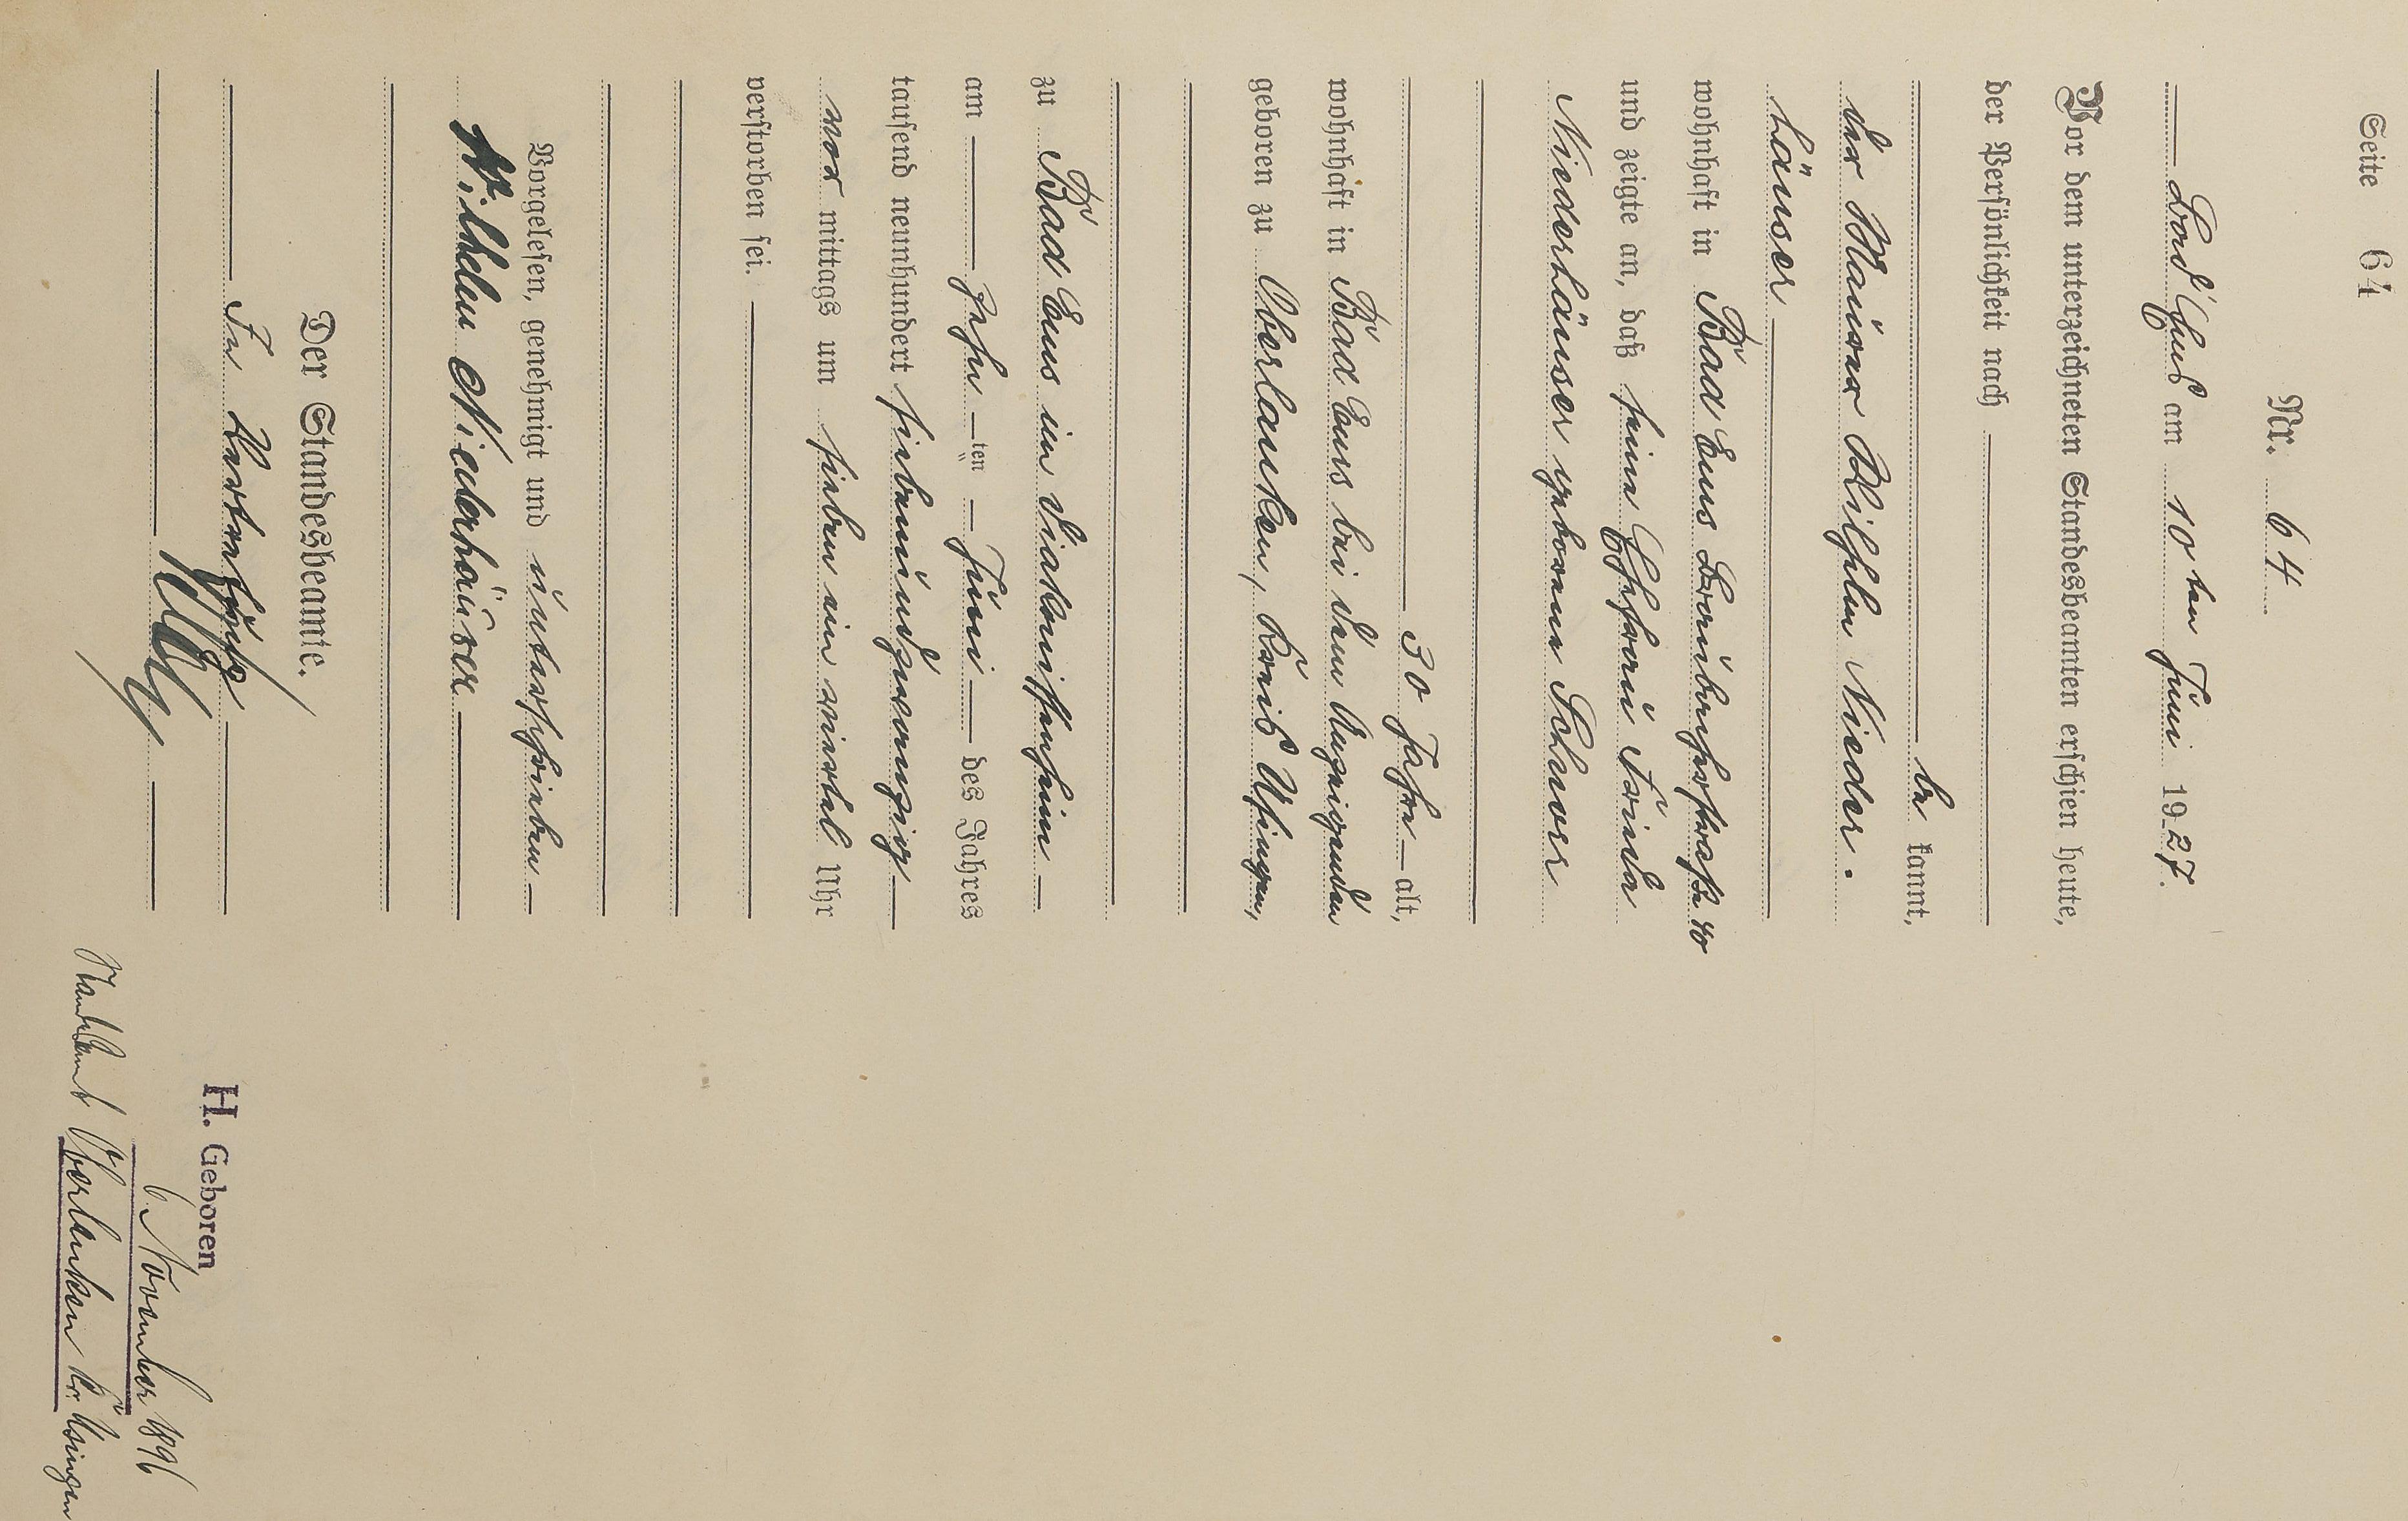 Seite 64
Nr. 64
Bad Ems am 10 ten Juni 1927.
Vor dem unterzeichneten Standesbeamten erschien heute,
der Persönlichkeit nach
be kannt,
der Maurer Wilhelm Nieder-
häuser
wohnhaft in Bad Ems Braubacherstraße 40
und zeigte an, daß seine Ehefrau Frieda
Niederhäuser geborene Schwer
30 Jahre alt,
wohnhaft in Bad Ems bei dem Anzeigenden
geboren zu Oberlauken, Kreis Usingen,
zu Bad Ems im Diakonissenheim
am zehn ten Juni des Jahres
tausend neunhundert siebenundzwanzig
vor mittags um sieben ein viertel Uhr
verstorben sei.
Vorgelesen, genehmigt und unterschrieben
Wilhelm Niederhäuser
Der Standesbeamte.
In Vertretung
H. Geboren
6. November 1896
Standesamt Oberlauken Kr. Usingen